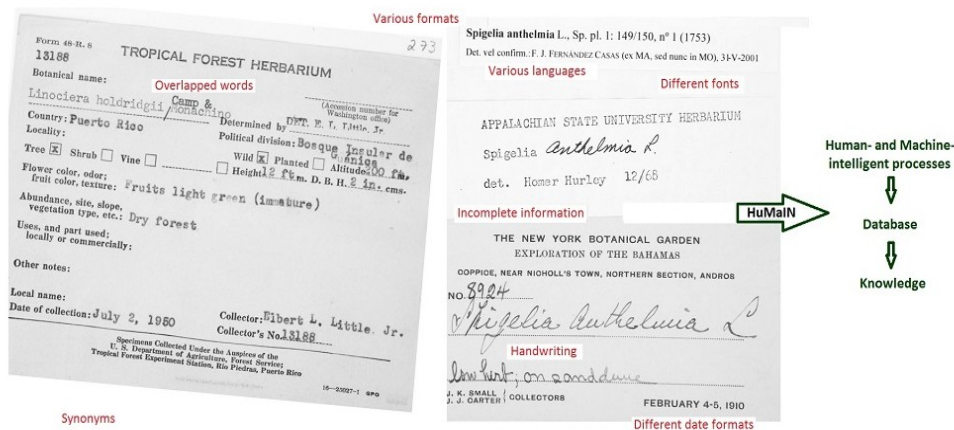 Various formats
Form 48-R. 8
273
13188
TROPICAL FOREST HERBARIUM
Botanical name:
Overlapped words
Linociera holdridgii Camp & Monachino
(Accession number for Washington office)
Determined by DET. E. L. Little, Jr.
Country: Puerto Rico
Political division: Bosque Insular de Guánica
Locality:
Tree X Shrub Vine Wild X Planted Altitude 200 ft.
Height 12 ft m. D. B. H. 2 in. cms.
Flower color, odor;
fruit color, texture: Fruits light green (immature)
Abundance, site, slope,
vegetation type, etc.: Dry forest
Uses, and part used;
locally or commercially:
Other notes:
Local name:
Date of collection: July 2, 1950
Collector: Elbert L. Little, Jr.
Collector's No. 13188
Specimens Collected Under the Auspices of the
U. S. Department of Agriculture, Forest Service;
Tropical Forest Experiment Station, Rio Piedras, Puerto Rico
16—25027-1 GPO
Synonyms
Spigelia anthelmia L., Sp. pl. 1: 149/150, nº 1 (1753)
Det. vel confirm.: F. J. FERNÁNDEZ CASAS (ex MA, sed nunc in MO), 31-V-2001
Various languages
Different fonts
APPALACHIAN STATE UNIVERSITY HERBARIUM
Spigelia anthelmia L.
det. Homer Hurley 12/68
Incomplete information
THE NEW YORK BOTANICAL GARDEN
EXPLORATION OF THE BAHAMAS
COPPICE, NEAR NICHOLL'S TOWN, NORTHERN SECTION, ANDROS
NO. 8924
Spigelia Anthelmia L
Handwriting
low herb; on sand dune
J. K. SMALL
J. J. CARTER COLLECTORS
FEBRUARY 4-5, 1910
Different date formats
HuMaIN
Human- and Machine-
intelligent processes
Database
Knowledge